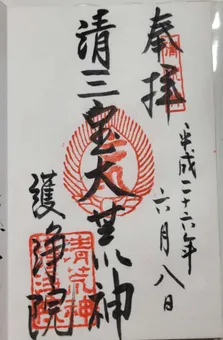 奉拝
平成二十六年
六月八日
清三宝大荒神
護浄院
清荒神